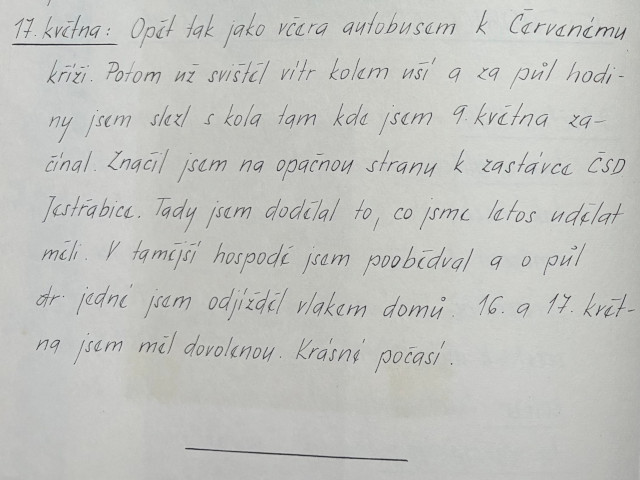 17. května: Opět tak jako včera autobusem k Červenému
kříži. Potom už svištěl vítr kolem uší a za půl hodi-
ny jsem slezl s kola tam kde jsem 9. května za-
čínal. Značil jsem na opačnou stranu k zastávce ČSD
Jestřabice. Tady jsem dodělal to, co jsme letos udělat
měli. V tamější hospodě jsem poobědval a o půl
dr. jedné jsem odjížděl vlakem domů. 16. a 17. květ-
na jsem měl dovolenou. Krásné počasí.